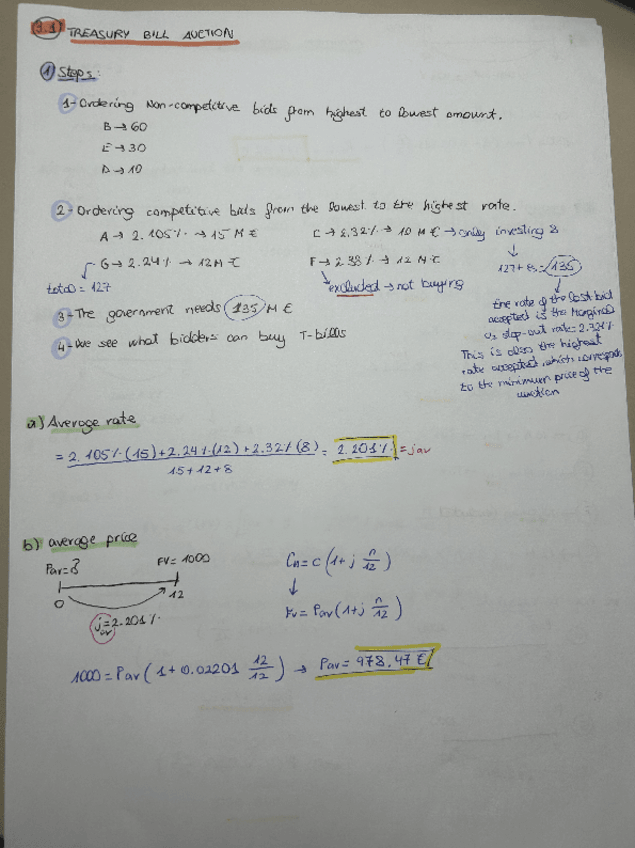 3.1) TREASURY BILL AUCTION
1) Steps:
1-Ordering Non-competitive bids from highest to lowest amount.
B → 60
E → 30
D → 10
2-Ordering competitive bids from the lowest to the highest rate.
A → 2.105% → 15 M €
C → 2.32% → 10 M € → only investing 8
G → 2.24% → 12 M €
F → 2.38% → 12 M €
127+8=135
total = 127
excluded → not buying
3-The government needs 135 M €
4-We see what bidders can buy T-bills
the rate of the last bid
accepted is the Marginal
vs stop-out rate=2.32%
This is also the highest
rate accepted, which corresponds
to the minimum price of the
auction
a) Average rate
= 2.105%(15)+2.24%(12)+2.32%(8) = 2.201% = jav
15+12+8
b) average price
Pav=?
FV= 1000
0
12
jav=2.201%
Cn=C(1+j n/12)
↓
FV= Pav(1+j n/12)
1000=Pav(1+0.02201 12/12) → Pav= 978.47 €